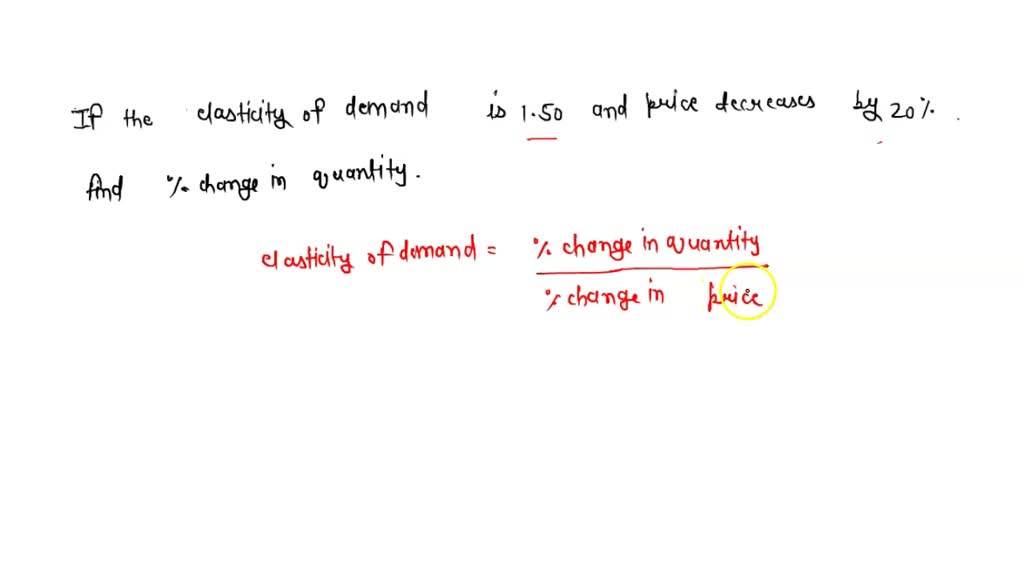 If the elasticity of demand is 1.50 and price decreases by 20%.
find % change in quantity.
elasticity of demand = % change in quantity
% change in price